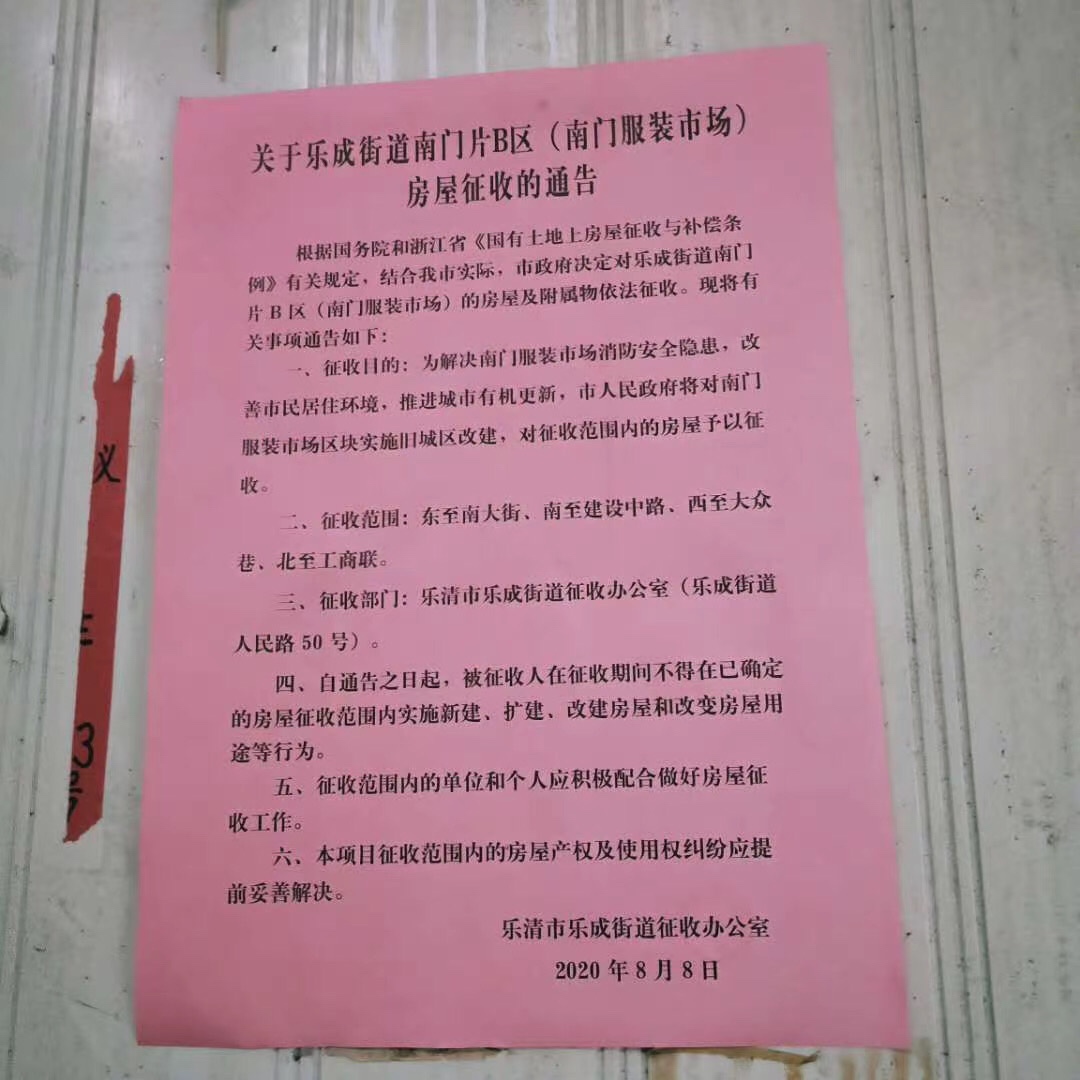 关于乐成街道南门片B区（南门服装市场）
房屋征收的通告
根据国务院和浙江省《国有土地上房屋征收与补偿条
例》有关规定，结合我市实际，市政府决定对乐成街道南门
片 B 区（南门服装市场）的房屋及附属物依法征收。现将有
关事项通告如下：
一、征收目的：为解决南门服装市场消防安全隐患，改
善市民居住环境，推进城市有机更新，市人民政府将对南门
服装市场区块实施旧城区改建，对征收范围内的房屋予以征
收。
二、征收范围：东至南大街、南至建设中路、西至大众
巷、北至工商联。
三、征收部门：乐清市乐成街道征收办公室（乐成街道
人民路 50 号）。
四、自通告之日起，被征收人在征收期间不得在已确定
的房屋征收范围内实施新建、扩建、改建房屋和改变房屋用
途等行为。
五、征收范围内的单位和个人应积极配合做好房屋征
收工作。
六、本项目征收范围内的房屋产权及使用权纠纷应提
前妥善解决。
乐清市乐成街道征收办公室
2020 年 8 月 8 日
义
3
号